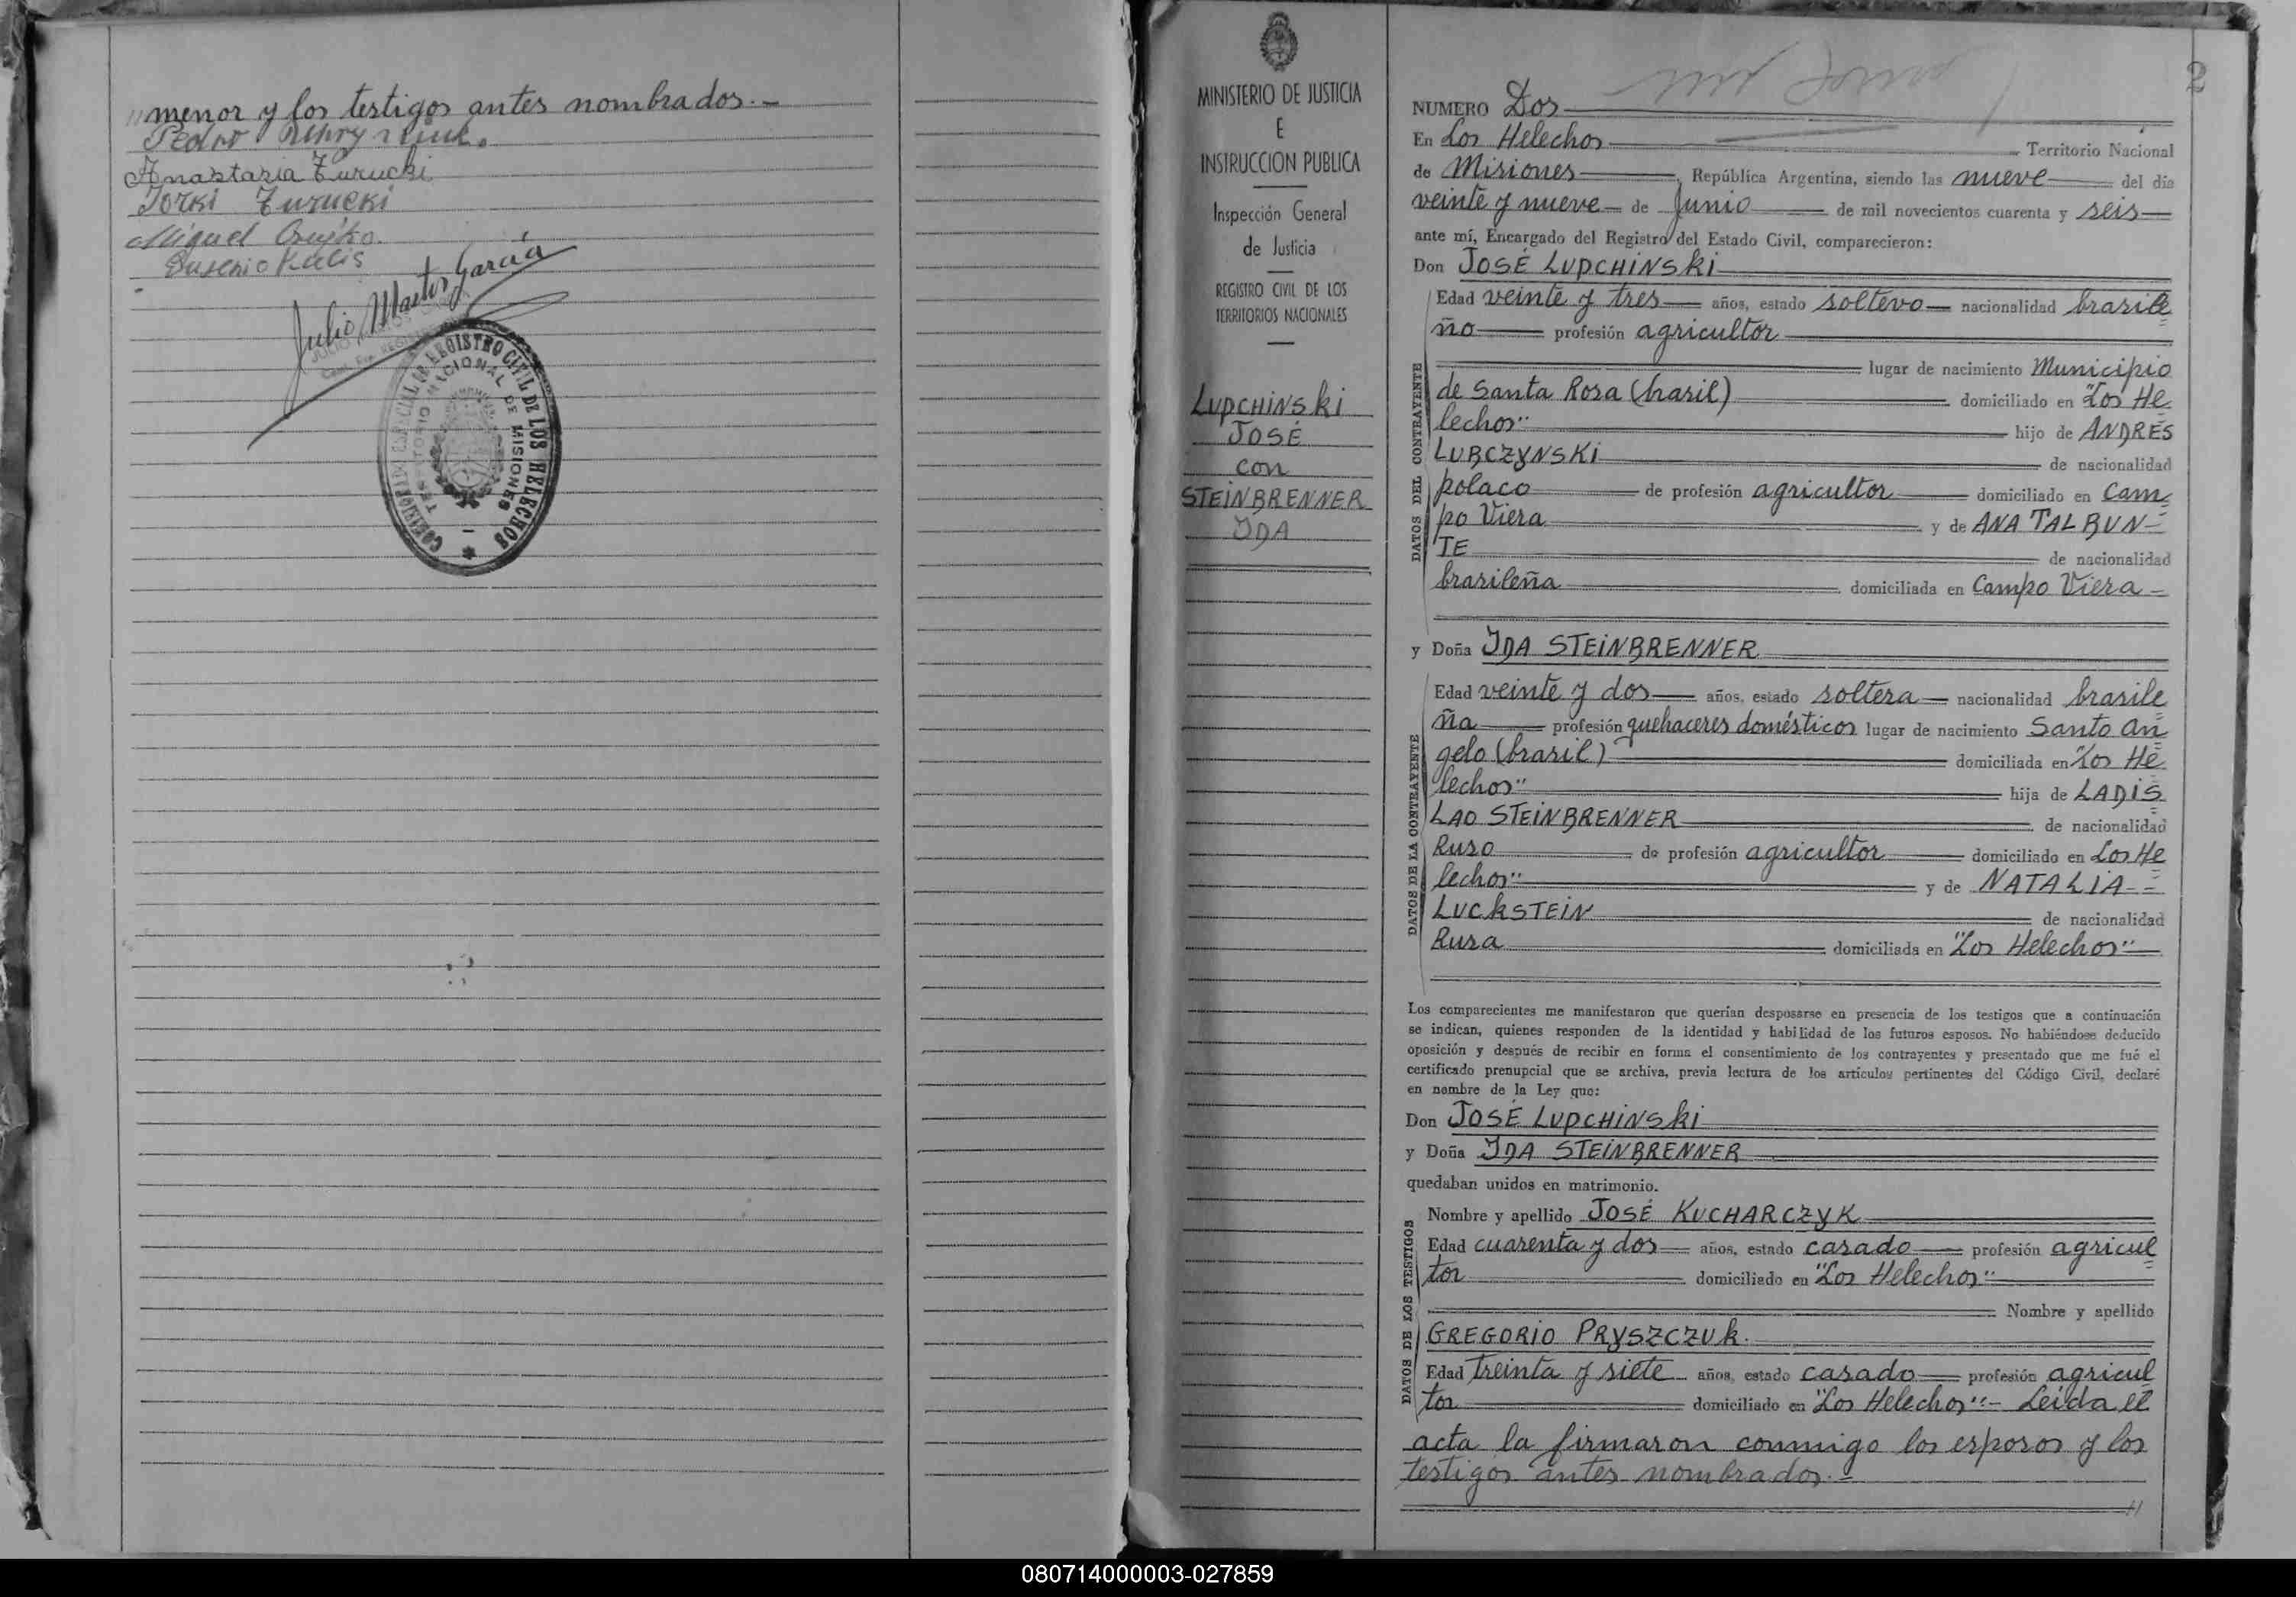 menor y los testigos antes nombrados.-
Pedro
Anastazia Zurucki
Jorki Zurucki
Miguel
Eusenio
Julio Martos García
JULIO
COMISION ESPECIAL DE REGISTRO CIVIL DE LOS HELECHOS
TERRITORIO NACIONAL DE MISIONES
MINISTERIO DE JUSTICIA
E
INSTRUCCION PUBLICA
Inspección General
de Justicia
REGISTRO CIVIL DE LOS
TERRITORIOS NACIONALES
LUPCHINSKI
JOSÉ
con
STEINBRENNER
IDA
2
NUMERO Dos
En Los Helechos Territorio Nacional
de Misiones, República Argentina, siendo las nueve del día
veinte y nueve de Junio de mil novecientos cuarenta y seis
ante mí, Encargado del Registro del Estado Civil, comparecieron:
Don JOSÉ LUPCHINSKI
DATOS DEL CONTRAYENTE
Edad veinte y tres años, estado soltero nacionalidad brasile
ño profesión agricultor
lugar de nacimiento Municipio
de Santa Rosa (brasil) domiciliado en "Los He
lechos" hijo de ANDRÉS
LUBCZYNSKI de nacionalidad
polaco de profesión agricultor domiciliado en Cam
po Viera y de ANA TALBUN-
TE de nacionalidad
brasileña domiciliada en Campo Viera
y Doña IDA STEINBRENNER
DATOS DE LA CONTRAYENTE
Edad veinte y dos años, estado soltera nacionalidad brasile
ña profesión quehaceres domésticos lugar de nacimiento Santo An
gelo (brasil) domiciliada en "Los He
lechos" hija de LADIS
LAO STEINBRENNER de nacionalidad
Ruso de profesión agricultor domiciliado en Los He
lechos" y de NATALIA
LUCKSTEIN de nacionalidad
Rusa domiciliada en "Los Helechos"
Los comparecientes me manifestaron que querían desposarse en presencia de los testigos que a continuación
se indican, quienes responden de la identidad y habilidad de los futuros esposos. No habiéndose deducido
oposición y después de recibir en forma el consentimiento de los contrayentes y presentado que me fué el
certificado prenupcial que se archiva, previa lectura de los artículos pertinentes del Código Civil, declaré
en nombre de la Ley que:
Don JOSÉ LUPCHINSKI
y Doña IDA STEINBRENNER
quedaban unidos en matrimonio.
DATOS DE LOS TESTIGOS
Nombre y apellido JOSÉ KUCHARCZYK
Edad cuarenta y dos años, estado casado profesión agricul
tor domiciliado en "Los Helechos"
Nombre y apellido
GREGORIO PRYSZCZUK.
Edad treinta y siete años, estado casado profesión agricul
tor domiciliado en "Los Helechos".- Leída el
acta la firmaron conmigo los esposos y los
testigos antes nombrados.-
080714000003-027859